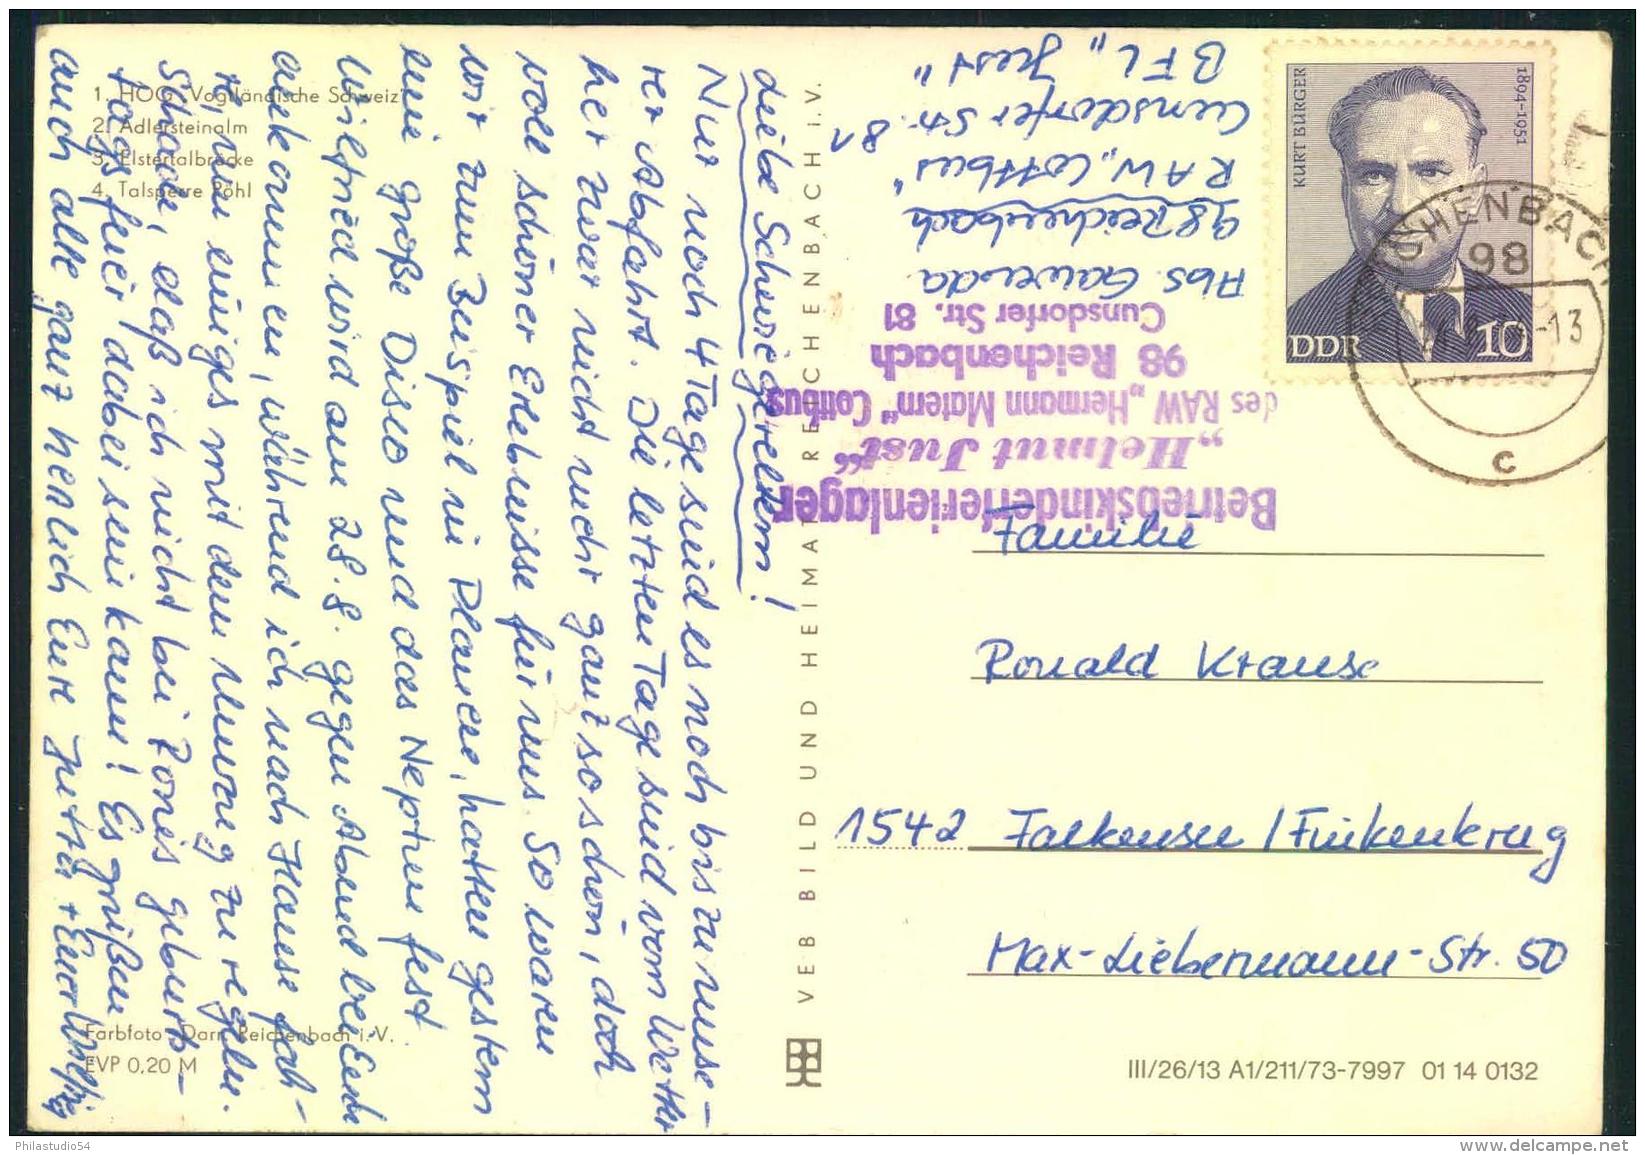 1. HOG „Vogtländische Schweiz"
2. Adlersteinalm
3. Elstertalbrücke
4. Talsperre Pöhl
Liebe Schwiegereltern!
Nur noch 4 Tage sind es noch bis zu unse-
rer Abfahrt. Die letzten Tage sind vom Wetter
her zwar nicht mehr ganz so schön, doch
voll schöner Erlebnisse für uns. So waren
wir zum Beispiel in Plauen, hatten gestern
eine große Disco und das Neptunfest
Wilfried wird am 28.8. gegen Abend bei Euch
ankommen, während ich nach Hause fah-
re, um einiges mit dem Umzug zu regeln.
Schade, daß ich nicht bei Ronis geburts-
tagsfeier dabei sein kann! Es grüßen
auch alle ganz herzlich Eure Jutta + Euer Wilfried
Farbfoto: Darr, Reichenbach i. V.
EVP 0,20 M
VEB BILD UND HEIMAT REICHENBACH I.V.
Abs. Gawenda
98 Reichenbach
RAW „Cottbus"
Cunsdorfer Str. 81
BFL „Just"
Betriebskinderferienlager
„Helmut Just"
des RAW „Hermann Matern" Cottbus
98 Reichenbach
Cunsdorfer Str. 81
KURT BÜRGER
1894-1951
DDR 10
REICHENBACH
98
-13
c
Familie
Ronald Krause
1542 Falkensee / Finkenkrug
Max-Liebermann-Str. 50
III/26/13 A1/211/73-7997 01 14 0132
Philastudio54
www.delcampe.net